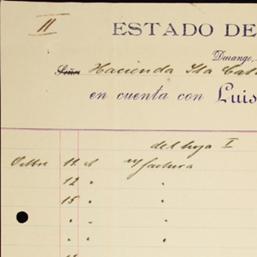 II
ESTADO DE
Durango,
Señr Hacienda Sta Cat
en cuenta con Luis
del hoja I
Octbre 11 s/ m/ factura
12 " "
15 " "
" "
" "